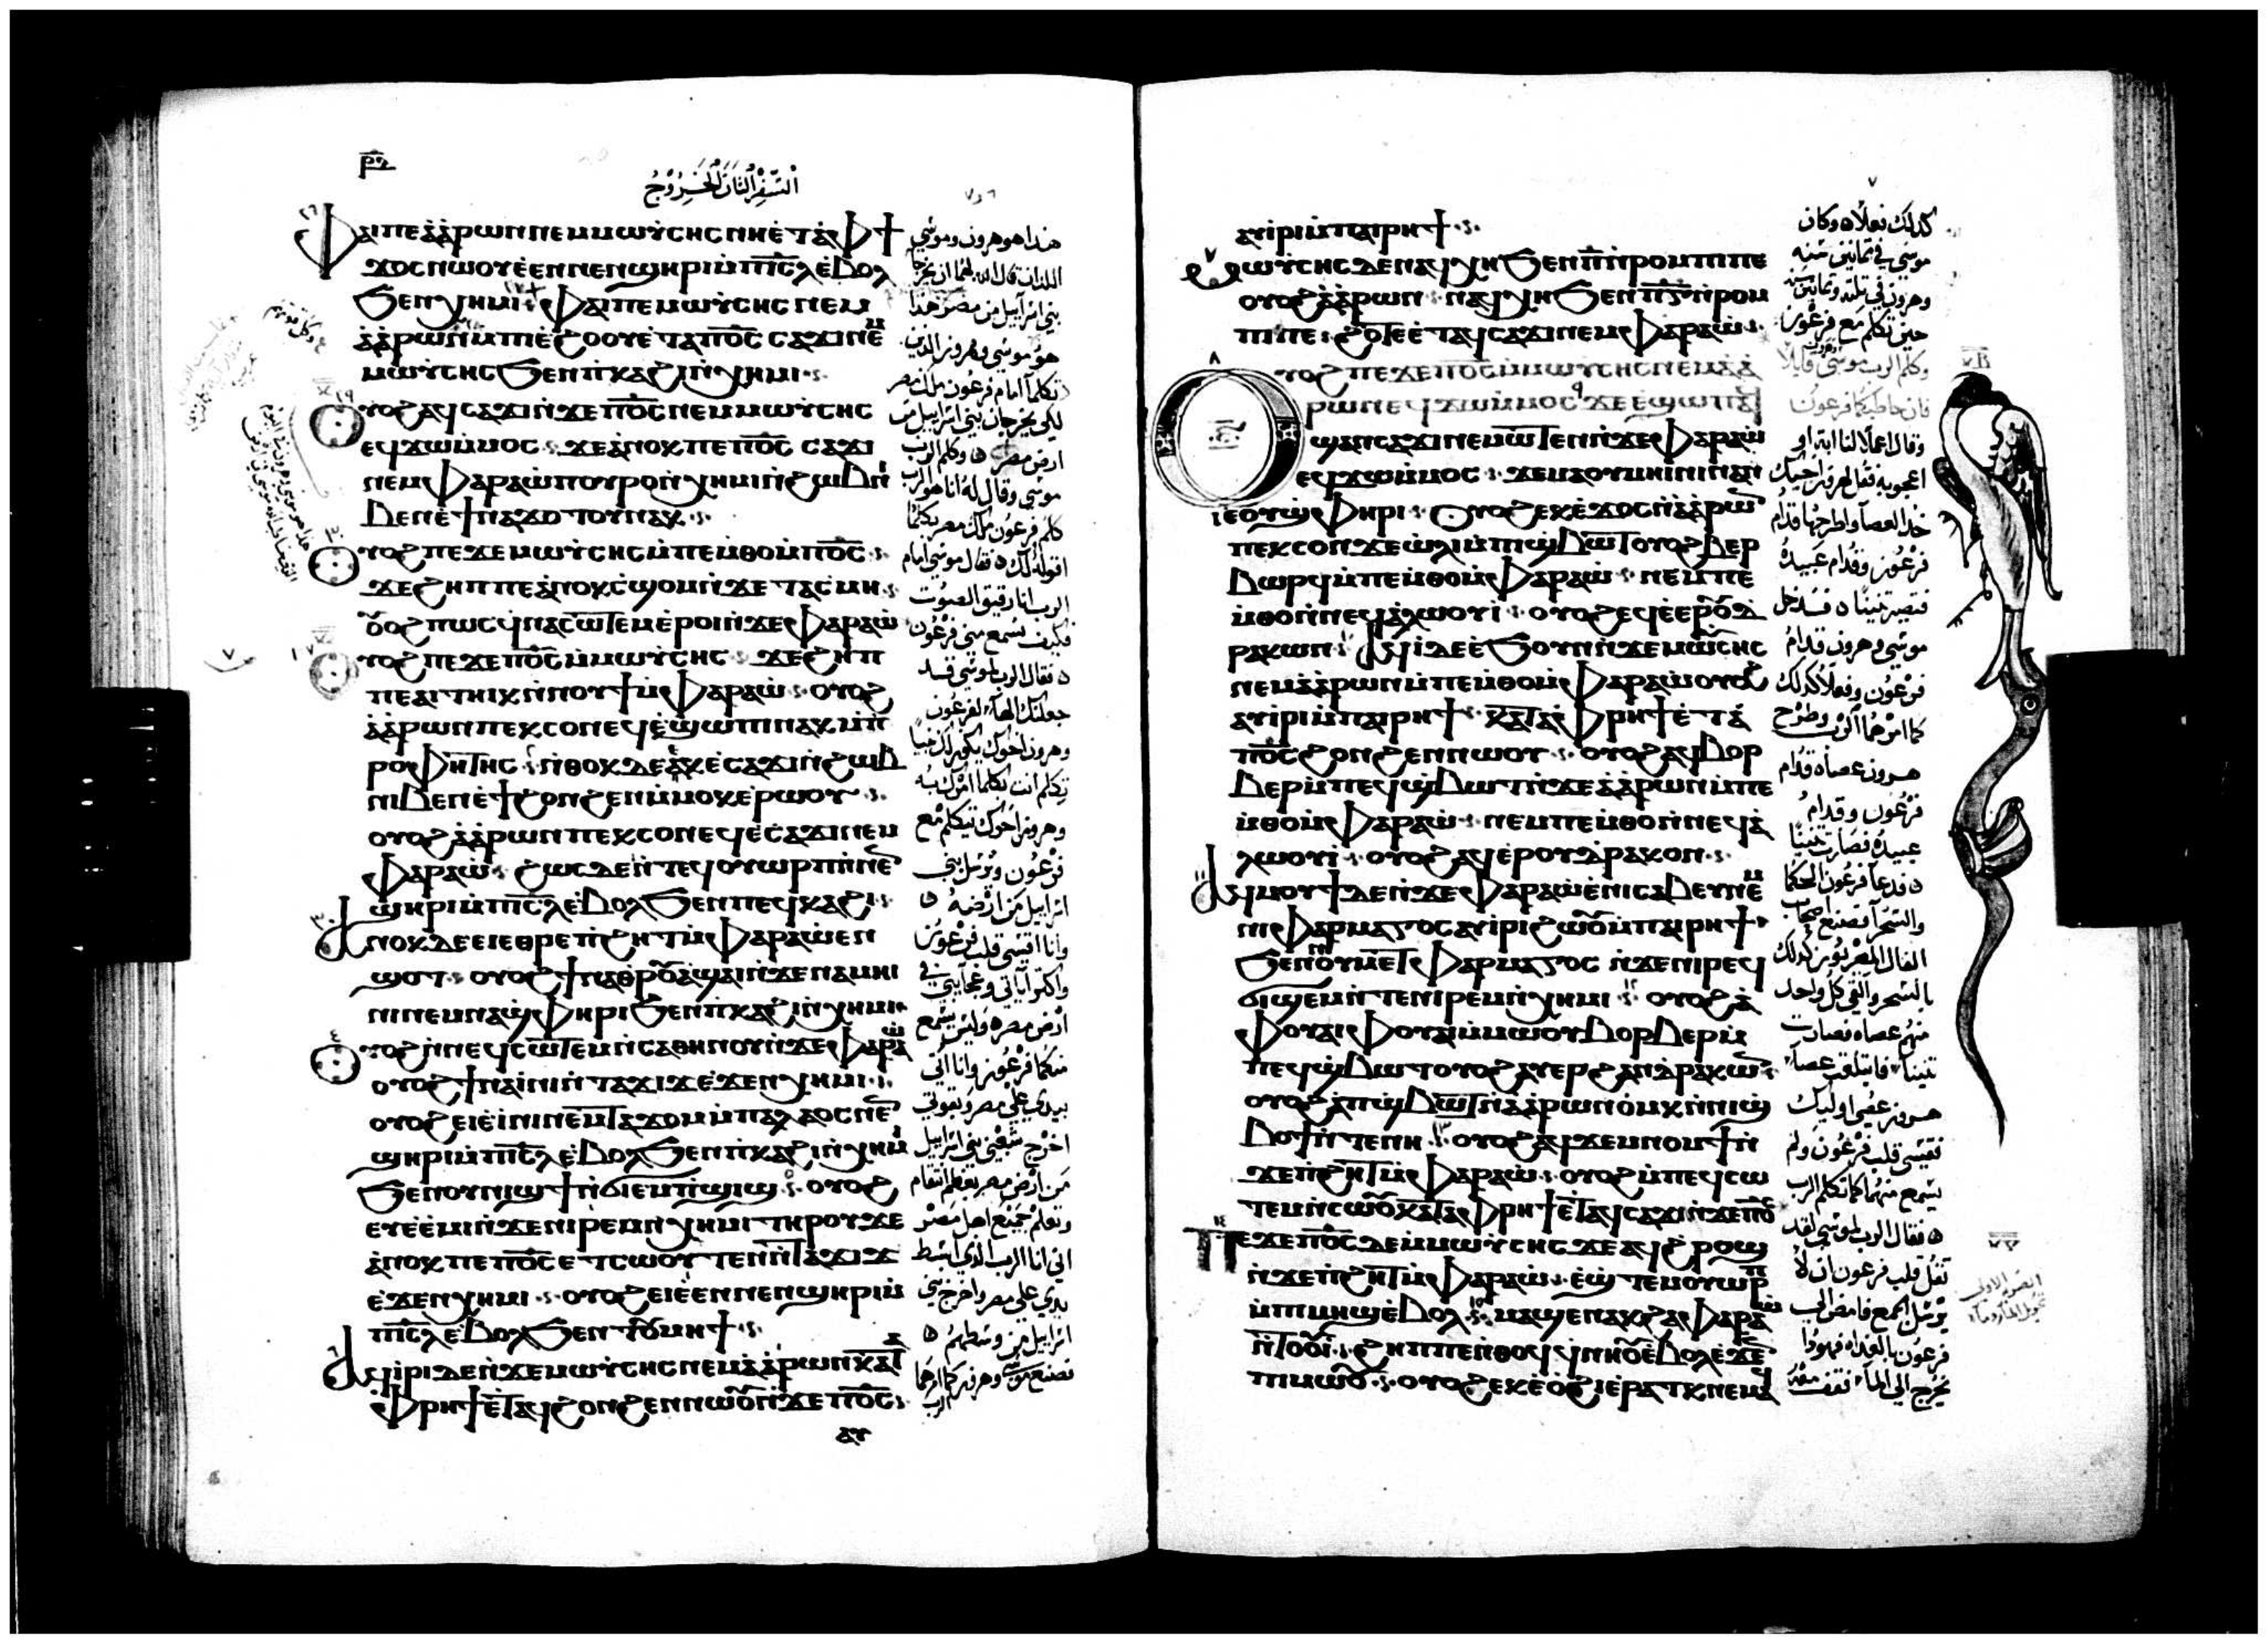 السفر الثاني الخروج
ⲫⲁⲓ ⲡⲉ ⲁⲁⲣⲱⲛ ⲛⲉⲙ ⲙⲱⲩⲥⲏⲥ ⲛⲏ ⲉⲧⲁ ⲫϯ
ϫⲟⲥ ⲛⲱⲟⲩ ⲉⲉⲛ ⲛⲉⲛϣⲏⲣⲓ ⲙⲡⲓⲥⲗ ⲉⲃⲟⲗ
ϧⲉⲛ ⲭⲏⲙⲓ ⲫⲁⲓ ⲡⲉ ⲙⲱⲩⲥⲏⲥ ⲛⲉⲙ
ⲁⲁⲣⲱⲛ ⲙⲡⲓⲉϩⲟⲟⲩ ⲉⲧⲁ ⲡⲟⲥ ⲥⲁϫⲓ ⲛⲉⲙ
ⲙⲱⲩⲥⲏⲥ ϧⲉⲛ ⲡⲕⲁϩⲓ ⲛⲭⲏⲙⲓ
ⲟⲩⲟϩ ⲁϥⲥⲁϫⲓ ⲛϫⲉ ⲡⲟⲥ ⲛⲉⲙ ⲙⲱⲩⲥⲏⲥ
ⲉϥϫⲱ ⲙⲙⲟⲥ ϫⲉ ⲁⲛⲟⲕ ⲡⲉ ⲡⲟⲥ ⲥⲁϫⲓ
ⲛⲉⲙ ⲫⲁⲣⲁⲱ ⲡⲟⲩⲣⲟ ⲛⲭⲏⲙⲓ ⲛϩⲱⲃ ⲛⲓ
ⲃⲉⲛ ⲉϯⲛⲁϫⲟⲧⲟⲩ ⲛⲁⲕ
ⲟⲩⲟϩ ⲡⲉϫⲉ ⲙⲱⲩⲥⲏⲥ ⲙⲡⲉⲙⲑⲟ ⲙⲡⲟⲥ
ϫⲉ ϩⲏⲡⲡⲉ ⲁⲛⲟⲕ ⲥϣⲟⲙ ⲛϫⲉ ⲧⲁⲥⲙⲏ
ⲟⲩⲟϩ ⲡⲱⲥ ϥⲛⲁⲥⲱⲧⲉⲙ ⲉⲣⲟⲓ ⲛϫⲉ ⲫⲁⲣⲁⲱ
ⲟⲩⲟϩ ⲡⲉϫⲉ ⲡⲟⲥ ⲙⲙⲱⲩⲥⲏⲥ ϫⲉ ϩⲏⲡ
ⲡⲉ ⲁⲓⲧⲏⲓⲕ ⲛⲛⲟⲩϯ ⲙⲫⲁⲣⲁⲱ ⲟⲩⲟϩ
ⲁⲁⲣⲱⲛ ⲡⲉⲕⲥⲟⲛ ⲉϥⲉϣⲱⲡⲓ ⲛⲁⲕ ⲙⲡ
ⲣⲟⲫⲏⲧⲏⲥ ⲛⲑⲟⲕ ⲇⲉ ⲉⲕⲉⲥⲁϫⲓ ⲛϩⲱⲃ
ⲛⲓⲃⲉⲛ ⲉϯϩⲟⲛϩⲉⲛ ⲙⲙⲟⲕ ⲉⲣⲱⲟⲩ
ⲟⲩⲟϩ ⲁⲁⲣⲱⲛ ⲡⲉⲕⲥⲟⲛ ⲉϥⲉⲥⲁϫⲓ ⲛⲉⲙ
ⲫⲁⲣⲁⲱ ϩⲱⲥ ⲇⲉ ⲛⲧⲉϥⲟⲩⲱⲣⲡ ⲛⲛⲉⲛ
ϣⲏⲣⲓ ⲙⲡⲓⲥⲗ ⲉⲃⲟⲗ ϧⲉⲛ ⲡⲉϥⲕⲁϩⲓ
ⲁⲛⲟⲕ ⲇⲉ ⲉⲓⲉⲑⲣⲉ ⲡϩⲏⲧ ⲙⲫⲁⲣⲁⲱ ⲉⲛ
ϣⲟⲧ ⲟⲩⲟϩ ϯⲛⲁⲑⲣⲟⲩⲁϣⲁⲓ ⲛϫⲉ ⲛⲁⲙⲏⲓ
ⲛⲓ ⲛⲉⲙ ⲛⲁϣⲫⲏⲣⲓ ϧⲉⲛ ⲡⲕⲁϩⲓ ⲛⲭⲏⲙⲓ
ⲟⲩⲟϩ ⲛⲛⲉϥⲥⲱⲧⲉⲙ ⲛⲥⲁⲑⲏⲛⲟⲩ ⲛϫⲉ ⲫⲁⲣⲁⲱ
ⲟⲩⲟϩ ϯⲛⲁⲓⲛⲓ ⲛⲧⲁϫⲓϫ ⲉϫⲉⲛ ⲭⲏⲙⲓ
ⲟⲩⲟϩ ⲉⲓⲉⲓⲛⲓ ⲛⲉⲙ ⲧⲁϫⲟⲙ ⲙⲡⲁⲗⲁⲟⲥ ⲛⲉⲛ
ϣⲏⲣⲓ ⲙⲡⲓⲥⲗ ⲉⲃⲟⲗ ϧⲉⲛ ⲡⲕⲁϩⲓ ⲛⲭⲏⲙⲓ
ϧⲉⲛ ⲟⲩⲛⲓϣϯ ⲛϭⲓⲉⲙⲡϣⲓϣ ⲟⲩⲟϩ
ⲉⲩⲉⲉⲙⲓ ⲛϫⲉ ⲛⲓⲣⲉⲙⲛⲭⲏⲙⲓ ⲧⲏⲣⲟⲩ ϫⲉ
ⲁⲛⲟⲕ ⲡⲉ ⲡⲟⲥ ⲉⲧⲥⲱⲟⲩⲧⲉⲛ ⲛⲧⲁϫⲓϫ
ⲉϫⲉⲛ ⲭⲏⲙⲓ ⲟⲩⲟϩ ⲉⲓⲉⲉⲛ ⲛⲉⲛϣⲏⲣⲓ ⲙ
ⲡⲓⲥⲗ ⲉⲃⲟⲗ ϧⲉⲛ ⲧⲟⲩⲙⲏϯ
ⲁϥⲓⲣⲓ ⲇⲉ ⲛϫⲉ ⲙⲱⲩⲥⲏⲥ ⲛⲉⲙ ⲁⲁⲣⲱⲛ ⲕⲁⲧⲁ
ⲫⲣⲏϯ ⲉⲧⲁϥϩⲟⲛϩⲉⲛ ⲛⲱⲟⲩ ⲛϫⲉ ⲡⲟⲥ
ⲁⲩ
هذا هو هرون وموسي
اللذان قال الله لهما ان يخرجا
بني اسراييل من مصر هذا
هو موسي وهرون الذين
تكلما امام فرعون ملك مصر
لكي يخرجان بني اسراييل من
ارض مصر وكلم الرب
موسي وقال له انا هو الرب
كلم فرعون ملك مصر بكلما
اقوله لك فقال موسي امام
الرب انا رقيق الصوت
فكيف يسمع مني فرعون
فقال الرب لموسي قد
جعلتك الها لفرعون
وهرون اخوك يكون لك نبيا
تكلم انت بكلما امرك به
وهرون اخوك يتكلم مع
فرعون ويرسل بني
اسراييل من ارضه
وانا اقسي قلب فرعون
واكثر اياتي وعجايبي في
ارض مصر وليس يسمع
منكما فرعون وانا اتي
بيدي علي مصر وبقوتي
اخرج شعبي بني اسراييل
من ارض مصر بعظم انتقام
وتعلم جميع اهل مصر
اني انا الرب الذي ابسط
يدي علي مصر واخرج بني
اسراييل من وسطهم
فصنع موسي وهرون كما امرهما
الرب
ⲁⲩⲓⲣⲓ ⲙⲡⲁⲓⲣⲏϯ
ⲙⲱⲩⲥⲏⲥ ⲇⲉ ⲛⲁϥⲭⲏ ϧⲉⲛ ⲡ ⲛⲣⲟⲙⲡⲓ ⲡⲉ
ⲟⲩⲟϩ ⲁⲁⲣⲱⲛ ⲛⲁϥⲭⲏ ϧⲉⲛ ⲡⲅ ⲛⲣⲟⲙ
ⲡⲓ ⲡⲉ ϩⲟⲧⲉ ⲉⲧⲁϥⲥⲁϫⲓ ⲛⲉⲙ ⲫⲁⲣⲁⲱ
ⲟⲩⲟϩ ⲡⲉϫⲉ ⲡⲟⲥ ⲙⲙⲱⲩⲥⲏⲥ ⲛⲉⲙ ⲁⲁ
ⲣⲱⲛ ⲉϥϫⲱ ⲙⲙⲟⲥ ϫⲉ ⲉϣⲱⲡ ⲁϥ
ϣⲁⲛⲥⲁϫⲓ ⲛⲉⲙⲱⲧⲉⲛ ⲛϫⲉ ⲫⲁⲣⲁⲱ
ⲉϥϫⲱ ⲙⲙⲟⲥ ϫⲉ ⲙⲁ ⲟⲩⲙⲏⲓⲛⲓ ⲛⲁⲛ
ⲓⲉ ⲟⲩϣⲫⲏⲣⲓ ⲟⲩⲟϩ ⲉⲕⲉϫⲟⲥ ⲛⲁⲁⲣⲱⲛ
ⲡⲉⲕⲥⲟⲛ ϫⲉ ⲱⲗⲓ ⲙⲡⲓϣⲃⲱⲧ ⲟⲩⲟϩ ⲃⲉⲣ
ⲃⲱⲣϥ ⲙⲡⲉⲙⲑⲟ ⲙⲫⲁⲣⲁⲱ ⲛⲉⲙ ⲡⲉ
ⲙⲑⲟ ⲛⲛⲉϥⲁⲗⲱⲟⲩⲓ ⲟⲩⲟϩ ⲉϥⲉⲉⲣⲟⲩⲇ
ⲣⲁⲕⲱⲛ ⲁϥⲓ ⲇⲉ ⲉϧⲟⲩⲛ ⲛϫⲉ ⲙⲱⲩⲥⲏⲥ
ⲛⲉⲙ ⲁⲁⲣⲱⲛ ⲙⲡⲉⲙⲑⲟ ⲙⲫⲁⲣⲁⲱ ⲟⲩⲟϩ
ⲁⲩⲓⲣⲓ ⲙⲡⲁⲓⲣⲏϯ ⲕⲁⲧⲁ ⲫⲣⲏϯ ⲉⲧⲁ
ⲡⲟⲥ ϩⲟⲛϩⲉⲛ ⲛⲱⲟⲩ ⲟⲩⲟϩ ⲁϥⲃⲟⲣ
ⲃⲉⲣ ⲙⲡⲉϥϣⲃⲱⲧ ⲛϫⲉ ⲁⲁⲣⲱⲛ ⲙⲡⲉ
ⲙⲑⲟ ⲙⲫⲁⲣⲁⲱ ⲛⲉⲙ ⲡⲉⲙⲑⲟ ⲛⲛⲉϥⲁ
ⲗⲱⲟⲩⲓ ⲟⲩⲟϩ ⲁϥⲉⲣⲟⲩⲇⲣⲁⲕⲟⲛ
ⲁϥⲙⲟⲩϯ ⲇⲉ ⲛϫⲉ ⲫⲁⲣⲁⲱ ⲉⲛⲓⲥⲁⲃⲉⲩ ⲛⲉⲙ
ⲛⲓⲫⲁⲣⲙⲁⲅⲟⲥ ⲁⲩⲓⲣⲓ ϩⲱⲟⲩ ⲙⲡⲁⲓⲣⲏϯ
ϧⲉⲛ ⲛⲟⲩⲙⲉⲧⲫⲁⲣⲙⲁⲅⲟⲥ ⲛϫⲉ ⲛⲓⲣⲉϥ
ϭⲓϣⲉⲙ ⲛⲧⲉ ⲛⲓⲣⲉⲙⲛⲭⲏⲙⲓ ⲟⲩⲟϩ ⲁ
ⲫⲟⲩⲁⲓ ⲫⲟⲩⲁⲓ ⲙⲙⲱⲟⲩ ⲃⲟⲣⲃⲉⲣ ⲙ
ⲡⲉϥϣⲃⲱⲧ ⲟⲩⲟϩ ⲁⲩⲉⲣϩⲁⲛⲇⲣⲁⲕⲱⲛ
ⲟⲩⲟϩ ⲁ ⲡϣⲃⲱⲧ ⲛⲁⲁⲣⲱⲛ ⲱⲙⲕ ⲛⲛⲓϣ
ⲃⲟϯ ⲛⲧⲉ ⲛⲏ ⲟⲩⲟϩ ⲁϥϫⲉⲙⲛⲟⲙϯ ⲛ
ϫⲉ ⲡϩⲏⲧ ⲙⲫⲁⲣⲁⲱ ⲟⲩⲟϩ ⲙⲡⲉϥⲥⲱ
ⲧⲉⲙ ⲛⲥⲱⲟⲩ ⲕⲁⲧⲁ ⲫⲣⲏϯ ⲉⲧⲁϥⲥⲁϫⲓ ⲛϫⲉ ⲡⲟⲥ
ⲡⲉϫⲉ ⲡⲟⲥ ⲇⲉ ⲙⲙⲱⲩⲥⲏⲥ ϫⲉ ⲁϥϩⲣⲟϣ
ⲛϫⲉ ⲡϩⲏⲧ ⲙⲫⲁⲣⲁⲱ ⲉϣⲧⲉⲙⲟⲩⲱⲣⲡ
ⲙⲡⲓⲙⲏϣ ⲉⲃⲟⲗ ⲙⲁϣⲉⲛⲁⲕ ϩⲁ ⲫⲁⲣⲁⲱ
ⲛⲧⲟⲟⲩⲓ ϩⲏⲡⲡⲉ ⲛⲑⲟϥ ϥⲛⲏⲟⲩ ⲉⲃⲟⲗ ⲉϫⲉⲛ
ⲡⲓⲙⲱⲟⲩ ⲟⲩⲟϩ ⲉⲕⲉⲟϩⲓ ⲉⲣⲁⲧⲕ ⲛⲉⲙⲁϥ
كذلك فعلا وكان
موسي في ثمانين سنه
وهرون في ثلثه وثمانين سنه
حين تكلم مع فرعون
وكلم الرب موسي وهرون قايلا
فان خاطبكما فرعون
وقال اعملا لنا ايه او
اعجوبه فقل لهرون اخيك
خذ العصا واطرحها قدام
فرعون وقدام عبيده
فتصير تنينا فدخل
موسي وهرون قدام
فرعون وفعلا كذلك
كما امرهما الرب وطرح
هرون عصاه قدام
فرعون وقدام
عبيده فصارت تنينا
فدعا فرعون الحكما
والسحرا فصنع اصحاب
الفال المصريون كذلك
بالسحر والقي كل واحد
منهم عصاه فصارت
تنينا فابتلعت عصا
هرون عصي اوليك
فقسي قلب فرعون ولم
يسمع منهما كما تكلم الرب
فقال الرب لموسي لقد
ثقل قلب فرعون ان لا
يرسل الجمع فامض الي
فرعون بالغداه فهوذا
يخرج الي الما فتقف معه